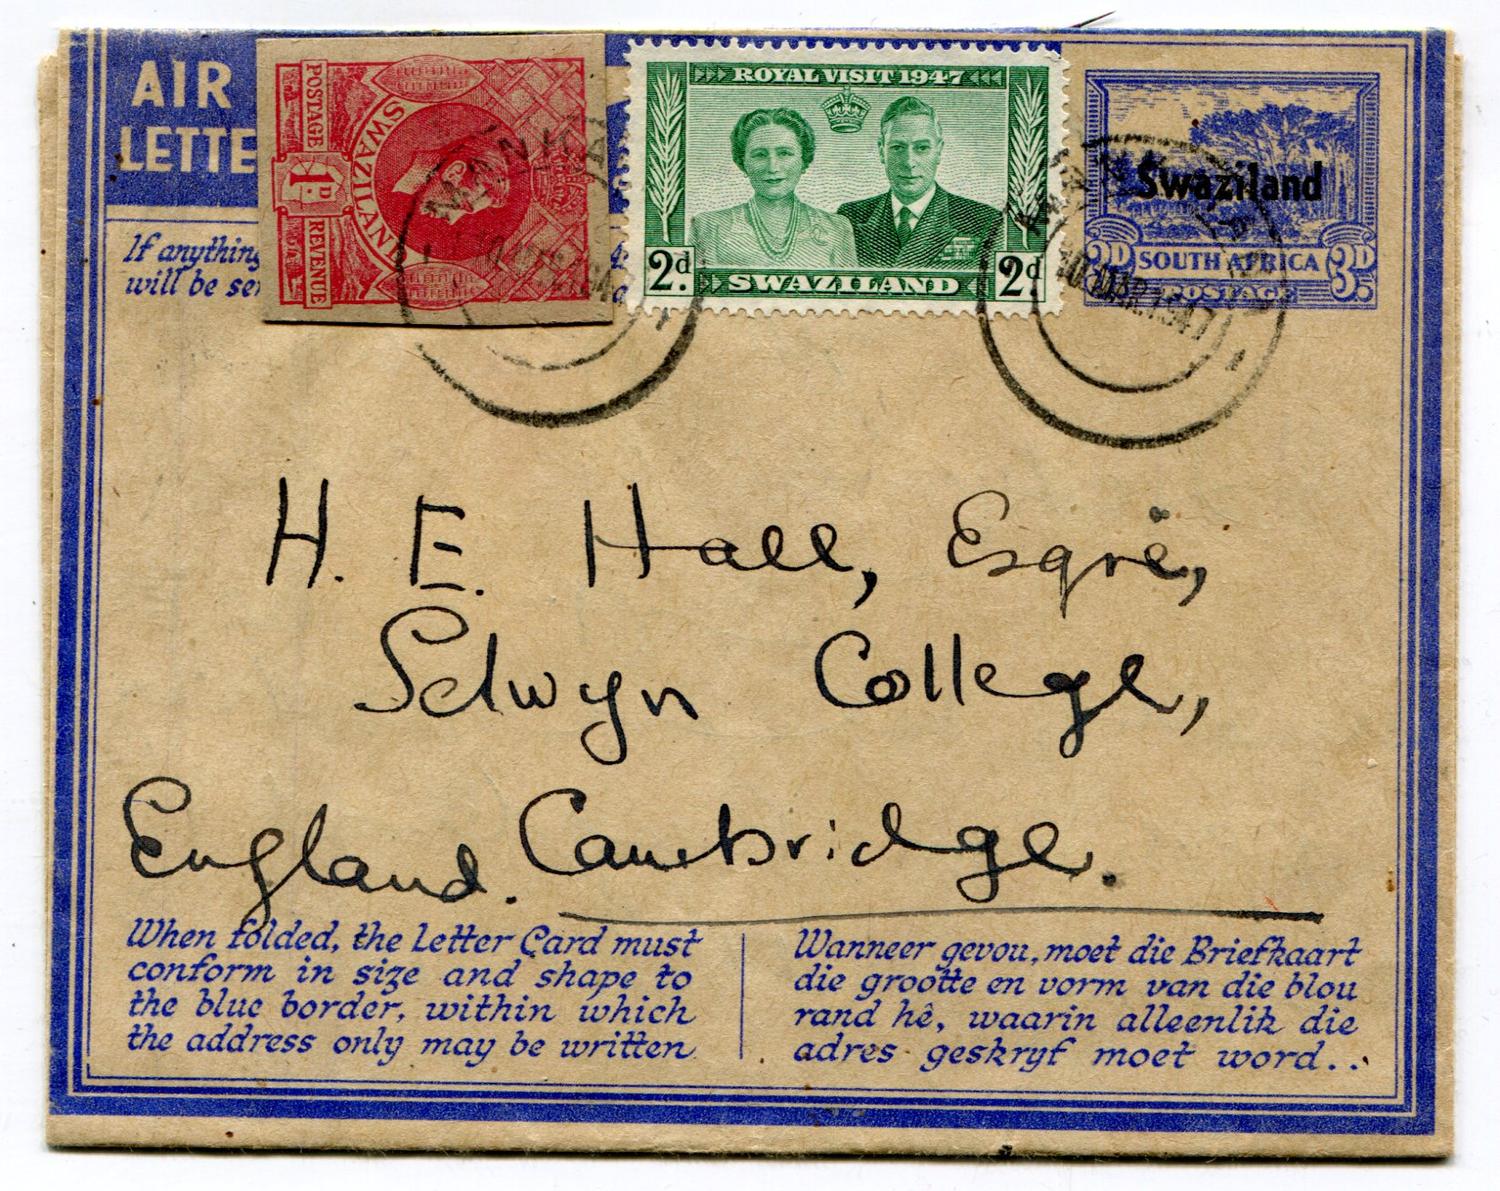 AIR
LETTE
If anything
will be se
POSTAGE
SWAZILAND
1D
REVENUE
ROYAL VISIT 1947
2d. 2d
SWAZILAND
Swaziland
3D SOUTH AFRICA 3D
POSTAGE
10 MAR 1947
H. E. Hall, Esqre,
Selwyn College,
England. Cambridge.
When folded, the Letter Card must
conform in size and shape to
the blue border, within which
the address only may be written
Wanneer gevou, moet die Briefkaart
die grootte en vorm van die blou
rand hê, waarin alleenlik die
adres geskryf moet word..